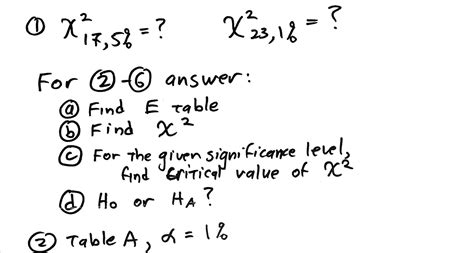 ① χ²17,5% = ? χ²23,1% = ?
For ②-⑥ answer:
ⓐ Find E table
ⓑ Find χ²
ⓒ For the given significance level,
find critical value of χ²
ⓓ H₀ or Hᴀ?
② Table A, α = 1%